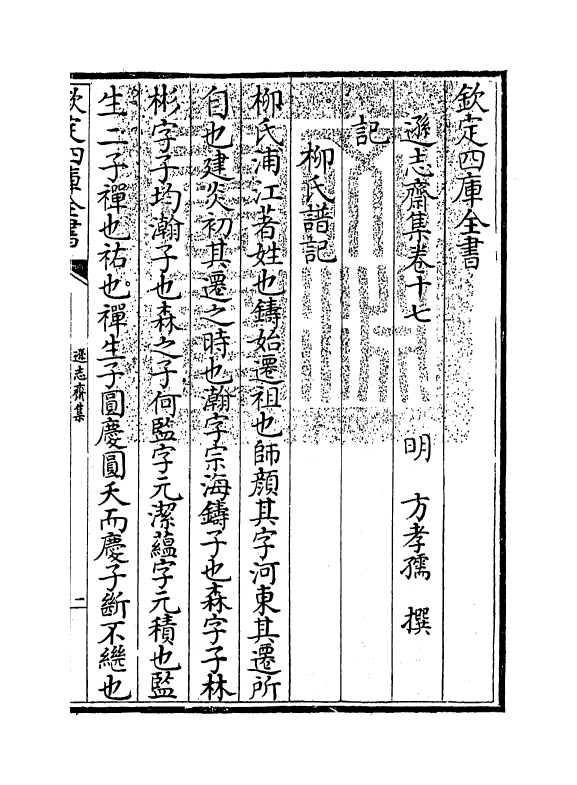 欽定四庫全書
遜志齋集卷十七　明　方孝孺　撰
記
柳氏譜記
柳氏浦江著姓也鑄始遷祖也師顔其字河東其遷所
自也建炎初其遷之時也瀚字宗海鑄子也森字子林
彬字子均瀚子也森之子何監字元潔藴字元積也監
生二子禪也祐也禪生子圓慶圓夭而慶子斷不繼也
遜志齋集